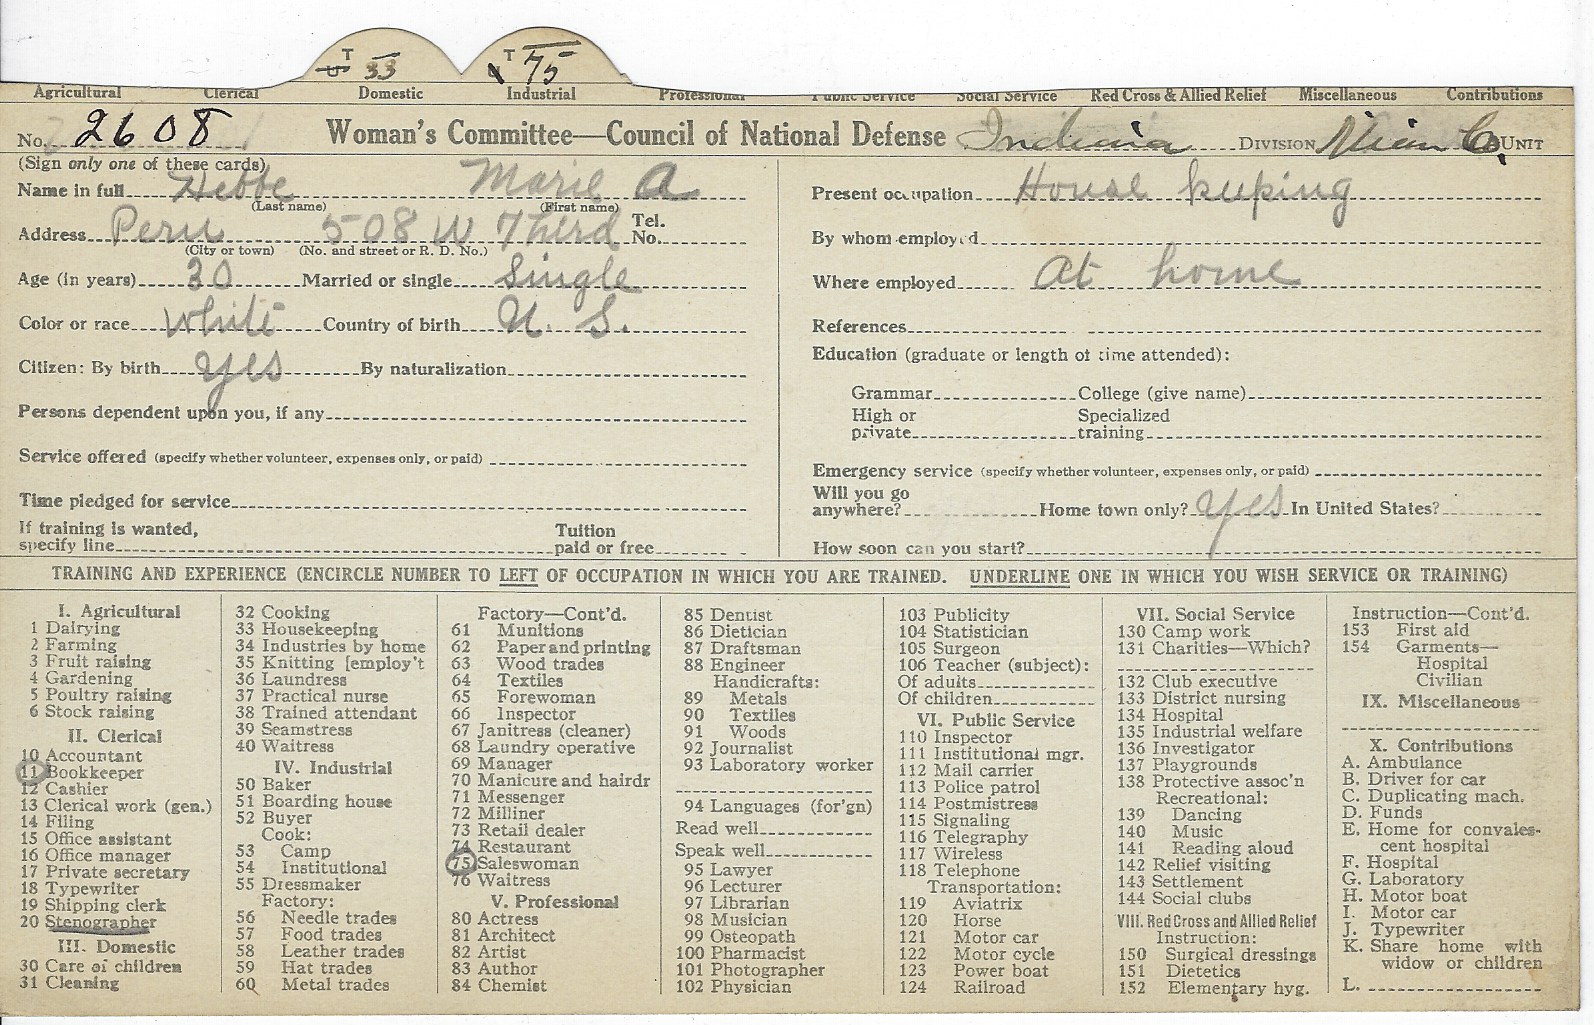 T 33 T 75
Agricultural Clerical Domestic Industrial Professional Public Service Social Service Red Cross & Allied Relief Miscellaneous Contributions
No. 2608 Woman's Committee—Council of National Defense Indiana DIVISION Miami Co. UNIT
(Sign only one of these cards)
Name in full Hebbe Marie A
(Last name) (First name)
Address Peru 508 W Third Tel. No.
(City or town) (No. and street or R. D. No.)
Age (in years) 30 Married or single Single
Color or race White Country of birth U. S.
Citizen: By birth Yes By naturalization
Persons dependent upon you, if any
Service offered (specify whether volunteer, expenses only, or paid)
Time pledged for service
If training is wanted,
specify line Tuition paid or free
Present occupation House keeping
By whom employed
Where employed At home
References
Education (graduate or length of time attended):
Grammar College (give name)
High or private Specialized training
Emergency service (specify whether volunteer, expenses only, or paid)
Will you go
anywhere? Home town only? Yes In United States?
How soon can you start?
TRAINING AND EXPERIENCE (ENCIRCLE NUMBER TO LEFT OF OCCUPATION IN WHICH YOU ARE TRAINED. UNDERLINE ONE IN WHICH YOU WISH SERVICE OR TRAINING)
I. Agricultural
1 Dairying
2 Farming
3 Fruit raising
4 Gardening
5 Poultry raising
6 Stock raising
II. Clerical
10 Accountant
11 Bookkeeper
12 Cashier
13 Clerical work (gen.)
14 Filing
15 Office assistant
16 Office manager
17 Private secretary
18 Typewriter
19 Shipping clerk
20 Stenographer
III. Domestic
30 Care of children
31 Cleaning
32 Cooking
33 Housekeeping
34 Industries by home
35 Knitting [employ't
36 Laundress
37 Practical nurse
38 Trained attendant
39 Seamstress
40 Waitress
IV. Industrial
50 Baker
51 Boarding house
52 Buyer
Cook:
53 Camp
54 Institutional
55 Dressmaker
Factory:
56 Needle trades
57 Food trades
58 Leather trades
59 Hat trades
60 Metal trades
Factory—Cont'd.
61 Munitions
62 Paper and printing
63 Wood trades
64 Textiles
65 Forewoman
66 Inspector
67 Janitress (cleaner)
68 Laundry operative
69 Manager
70 Manicure and hairdr
71 Messenger
72 Milliner
73 Retail dealer
74 Restaurant
75 Saleswoman
76 Waitress
V. Professional
80 Actress
81 Architect
82 Artist
83 Author
84 Chemist
85 Dentist
86 Dietician
87 Draftsman
88 Engineer
Handicrafts:
89 Metals
90 Textiles
91 Woods
92 Journalist
93 Laboratory worker
94 Languages (for'gn)
Read well
Speak well
95 Lawyer
96 Lecturer
97 Librarian
98 Musician
99 Osteopath
100 Pharmacist
101 Photographer
102 Physician
103 Publicity
104 Statistician
105 Surgeon
106 Teacher (subject):
Of adults
Of children
VI. Public Service
110 Inspector
111 Institutional mgr.
112 Mail carrier
113 Police patrol
114 Postmistress
115 Signaling
116 Telegraphy
117 Wireless
118 Telephone
Transportation:
119 Aviatrix
120 Horse
121 Motor car
122 Motor cycle
123 Power boat
124 Railroad
VII. Social Service
130 Camp work
131 Charities—Which?
132 Club executive
133 District nursing
134 Hospital
135 Industrial welfare
136 Investigator
137 Playgrounds
138 Protective assoc'n
Recreational:
139 Dancing
140 Music
141 Reading aloud
142 Relief visiting
143 Settlement
144 Social clubs
VIII. Red Cross and Allied Relief
Instruction:
150 Surgical dressings
151 Dietetics
152 Elementary hyg.
Instruction—Cont'd.
153 First aid
154 Garments—
Hospital
Civilian
IX. Miscellaneous
X. Contributions
A. Ambulance
B. Driver for car
C. Duplicating mach.
D. Funds
E. Home for convales-
cent hospital
F. Hospital
G. Laboratory
H. Motor boat
I. Motor car
J. Typewriter
K. Share home with
widow or children
L.